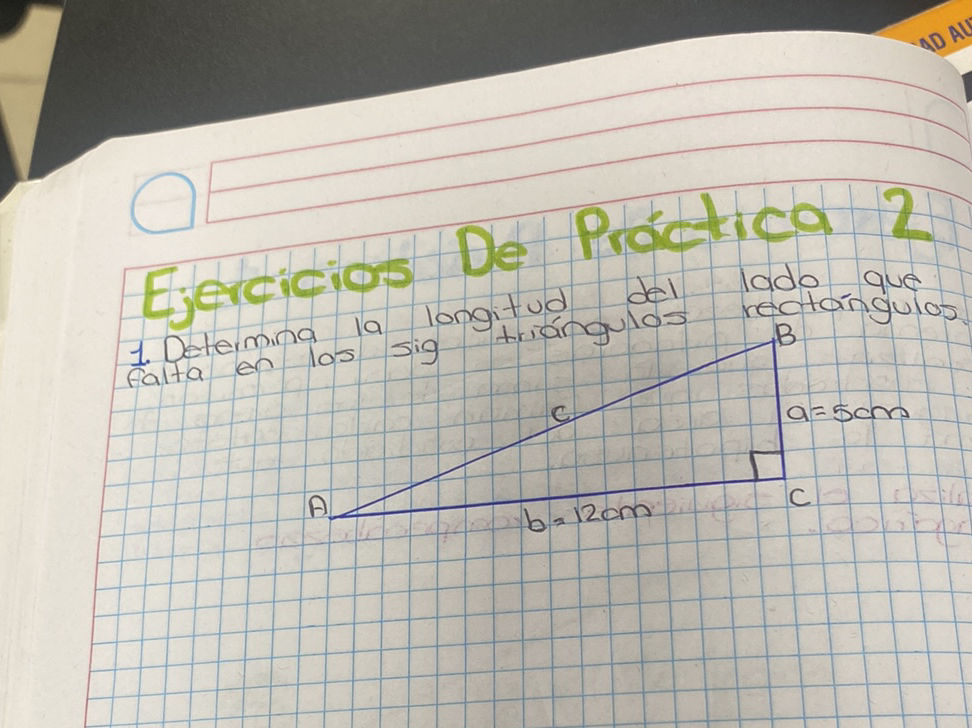 AD AU
Ejercicios De Práctica 2
1. Determina la longitud del lado que
falta en los sig triángulos rectángulos.
B
c
a=5cm
A
b=12cm
C